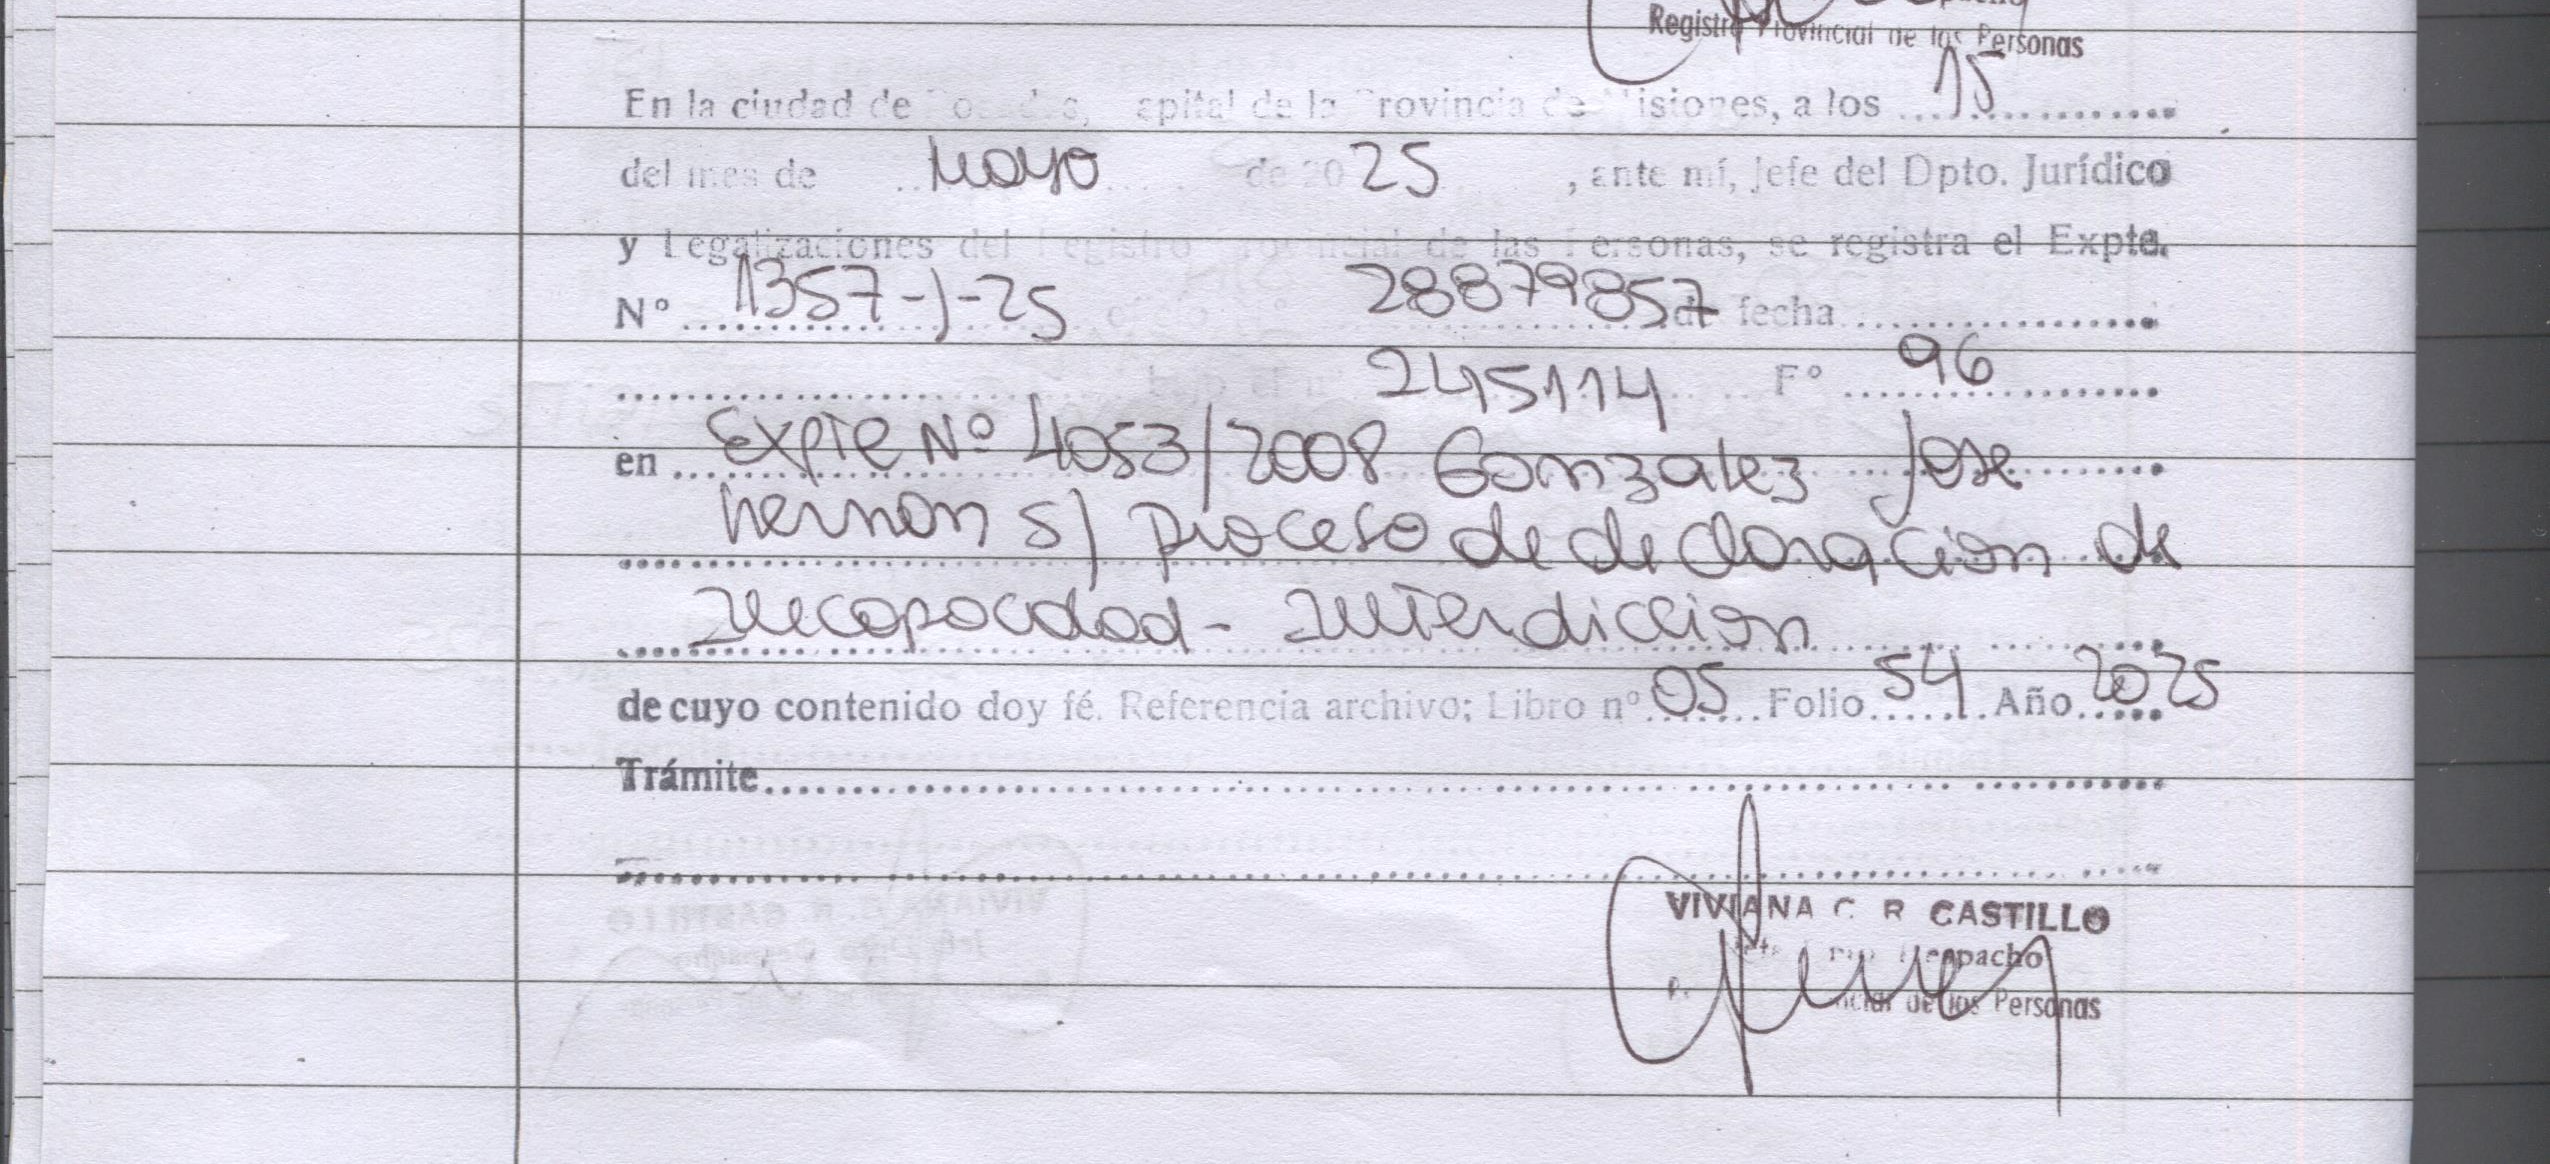 Registro Provincial de las Personas
En la ciudad de Posadas, Capital de la Provincia de Misiones, a los 15
del mes de Mayo de 2025, ante mí, Jefe del Dpto. Jurídico
y Legalizaciones del Registro Provincial de las Personas, se registra el Expte.
Nº 1357-J-25 oficio nº 28879857 de fecha
bajo el nº 2415114 Fº 96
en Expte Nº 4053/2008 Gonzalez Jose
Hernan s/ Proceso de declaracion de
Incapacidad - Interdiccion
de cuyo contenido doy fé. Referencia archivo; Libro nº 05 Folio 54 Año 2025
Trámite
VIVIANA C. R. CASTILLO
Jefe Dpto. Despacho
Provincial de las Personas